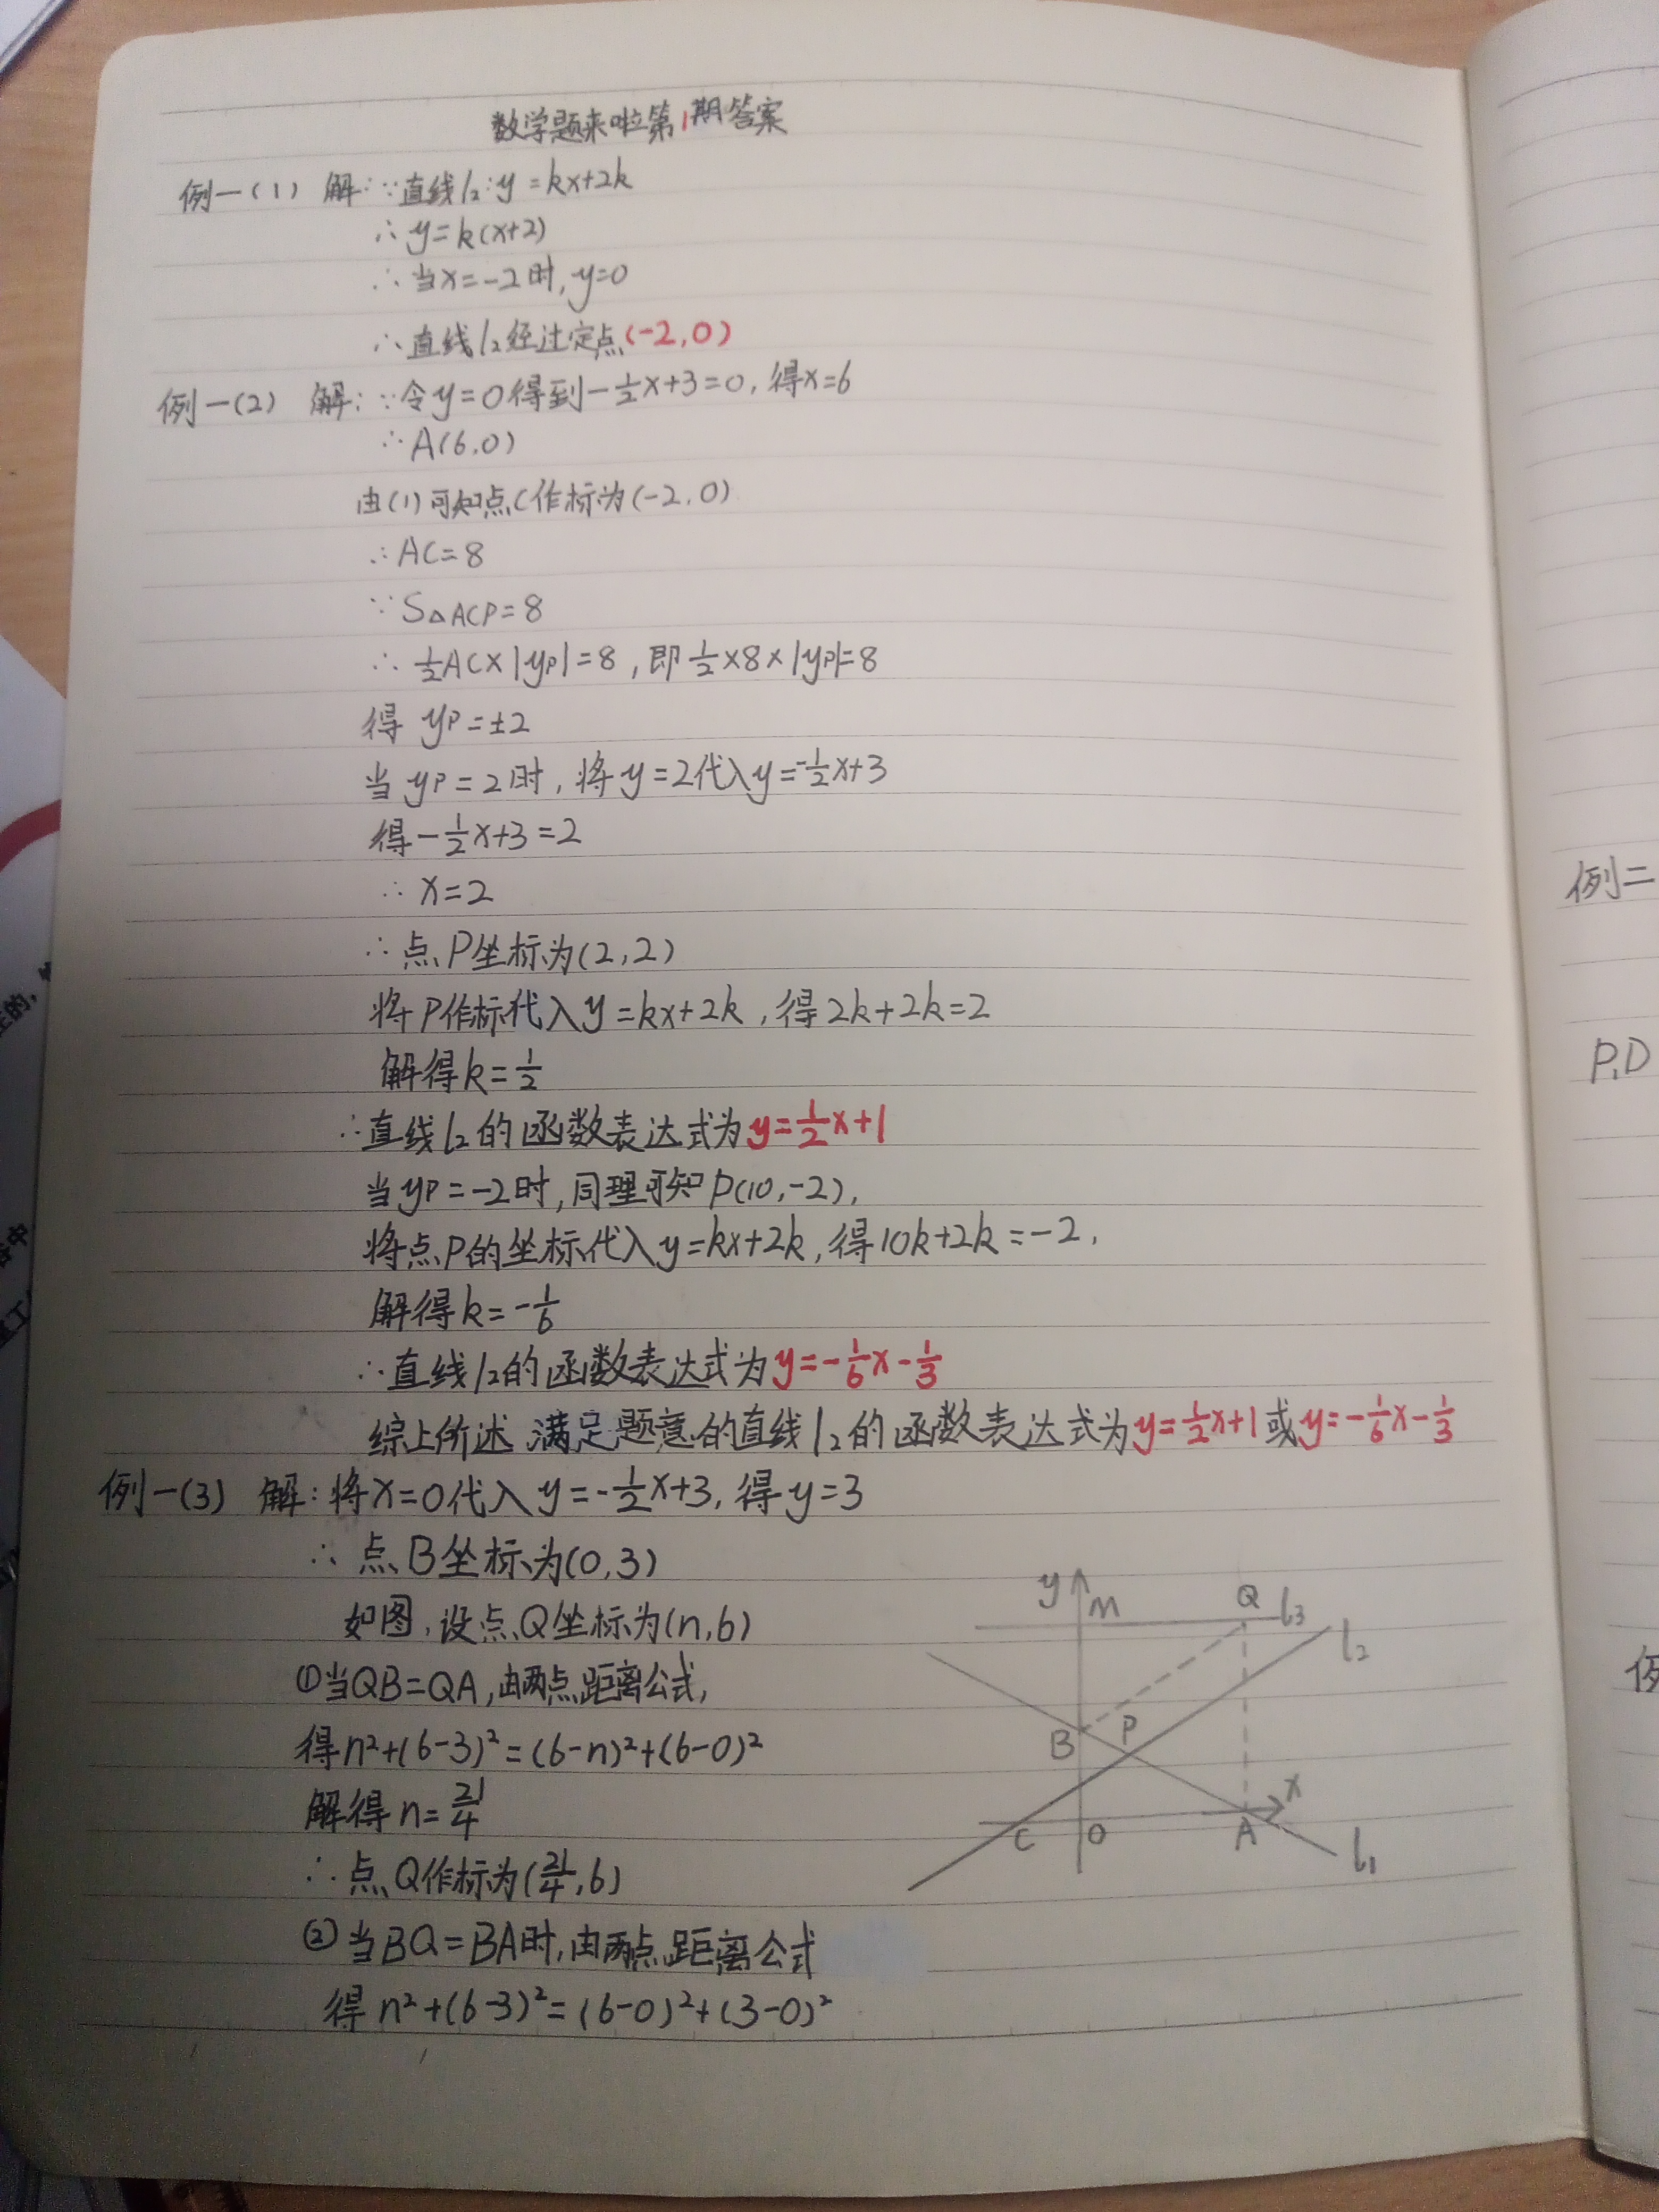 数学题来啦第1期答案
例一(1) 解:∵直线l₂:y=kx+2k
∴y=k(x+2)
∴当x=-2时,y=0
∴直线l₂经过定点(-2,0)
例一(2) 解:∵令y=0得到-½x+3=0,得x=6
∴A(6,0)
由(1)可知点C作标为(-2,0)
∴AC=8
∵S△ACP=8
∴½AC×|yP|=8,即½×8×|yP|=8
得 yP=±2
当yP=2时,将y=2代入y=-½x+3
得-½x+3=2
∴x=2
∴点P坐标为(2,2)
将P作标代入y=kx+2k,得2k+2k=2
解得k=½
∴直线l₂的函数表达式为y=½x+1
当yP=-2时,同理可知P(10,-2),
将点P的坐标代入y=kx+2k,得10k+2k=-2,
解得k=-1/6
∴直线l₂的函数表达式为y=-1/6x-1/3
综上所述 满足题意的直线l₂的函数表达式为y=½x+1或y=-1/6x-1/3
例一(3) 解:将x=0代入y=-½x+3,得y=3
∴点B坐标为(0,3)
如图,设点Q坐标为(n,6)
①当QB=QA,由两点距离公式,
得n²+(6-3)²=(6-n)²+(6-0)²
解得n=21/4
∴点Q作标为(21/4,6)
②当BQ=BA时,由两点距离公式
得n²+(6-3)²=(6-0)²+(3-0)²
y M Q l₃
l₂
B P
x
C O A l₁
例二
P,D